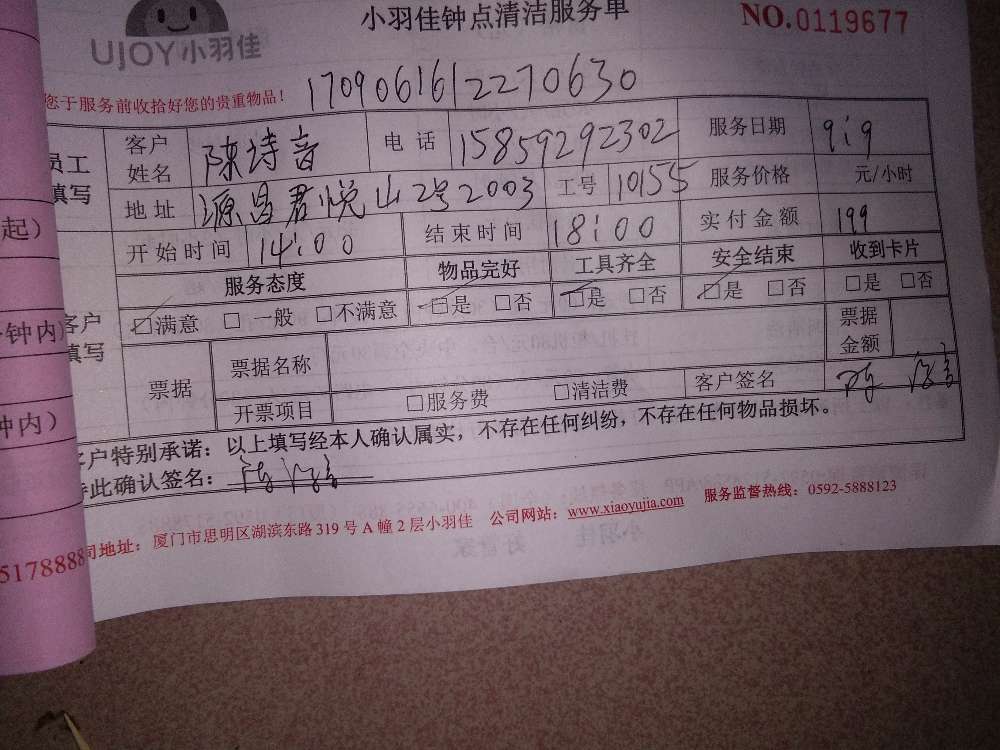 小羽佳钟点清洁服务单
NO.0119677
UJOY小羽佳
您于服务前收拾好您的贵重物品！
1709061612270630
员工填写
客户姓名 陈诗音 电话 15859292302 服务日期 9:9
地址 源昌君悦山2号2003 工号 10155 服务价格 元/小时
开始时间 14:00 结束时间 18:00 实付金额 199
服务态度 物品完好 工具齐全 安全结束 收到卡片
□满意 □一般 □不满意 □是 □否 □是 □否 □是 □否 □是 □否
客户填写
票据 票据名称 票据金额
开票项目 □服务费 □清洁费 客户签名
客户特别承诺：以上填写经本人确认属实，不存在任何纠纷，不存在任何物品损坏。
此确认签名：
地址：厦门市思明区湖滨东路319号A幢2层小羽佳 公司网站：www.xiaoyujia.com 服务监督热线：0592-5888123
5178888
起）
钟内）
钟内）